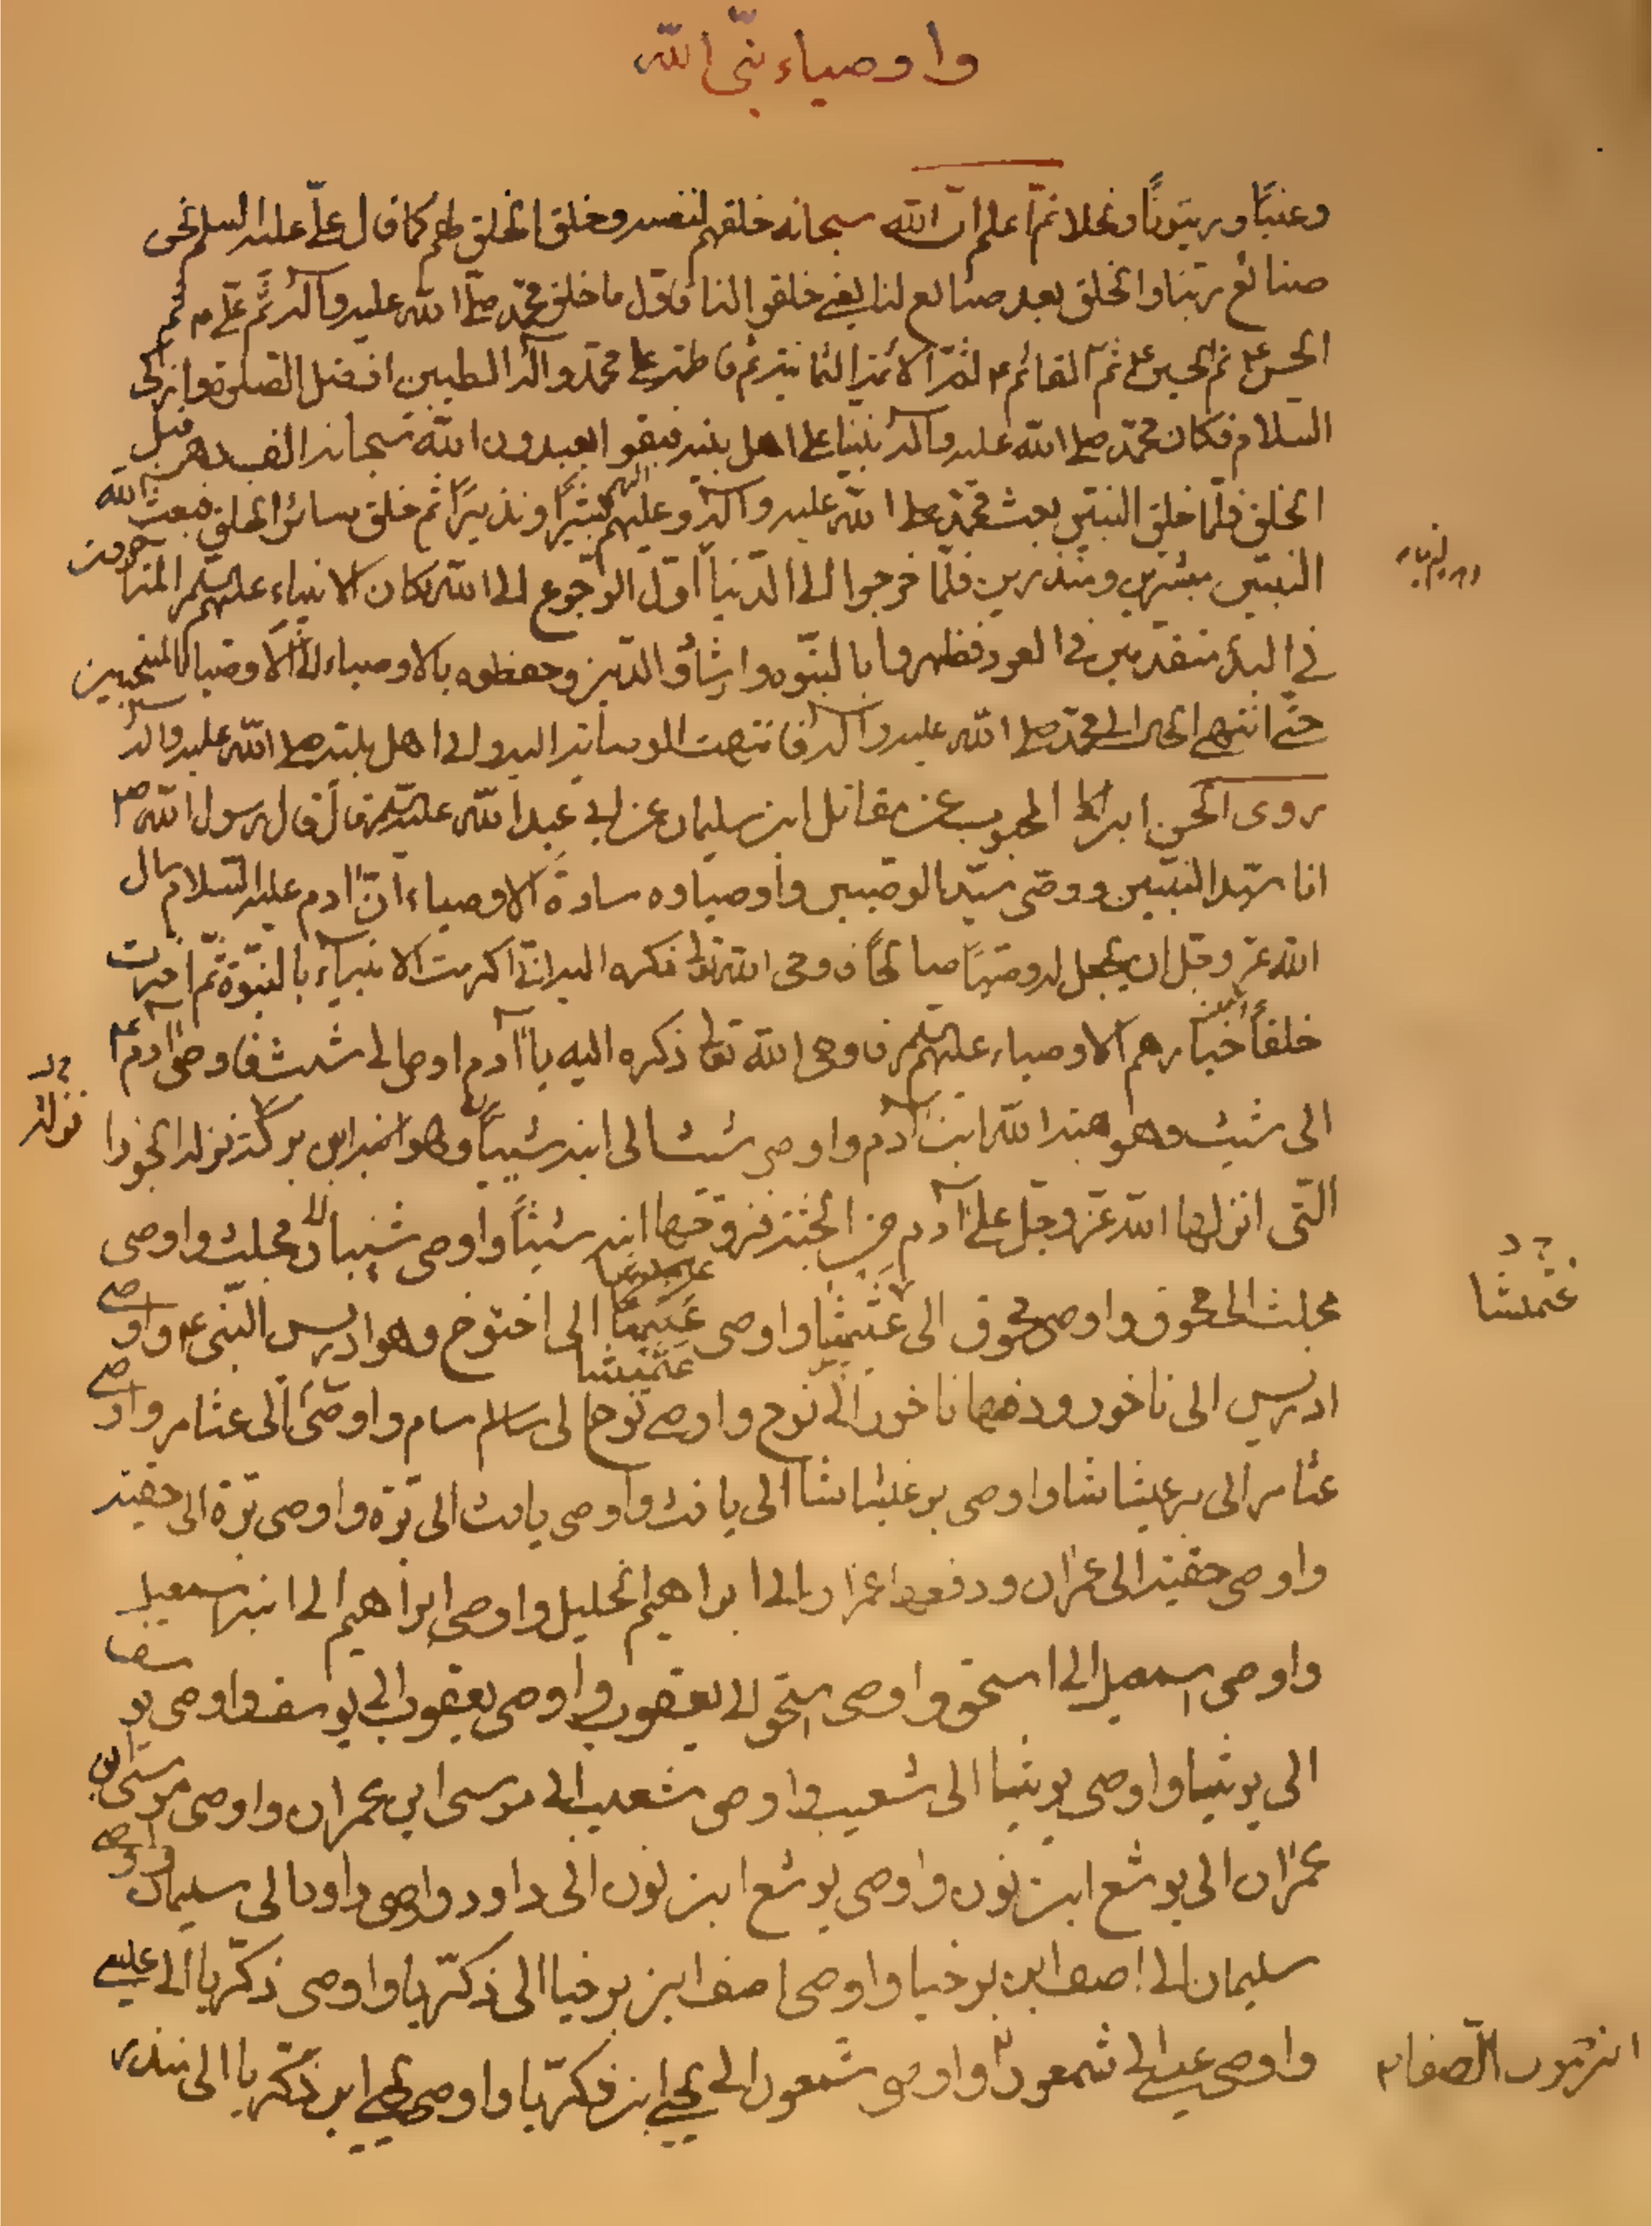 واوصياء نبى الله
وعنبًا وزيتونًا ونخلا ثمّ اعلم انّ الله سبحانه خلقهم لنفسه وخلق الخلق لهم كما قال علىّ عليه السلم نحن
صنائع ربّنا والخلق بعد صنائع لنا يعنى خلقوا لنا فاوّل ما خلق محمّد صلى الله عليه وآله ثمّ علىّ ٤ ثم
الحسن ٤ ثم الحسين ٤ ثمّ القائم ٤ ثمّ الائمّه الثمانيه ثم فاطمه على محمّد وآله الطيبين افضل الصلوة وازكى
السلام فكان محمّد صلى الله عليه وآله نبيّا على اهل بيته فبقوا يعبدون الله سبحانه الف دهر قبل
الخلق فلمّا خلق النبيّين بعث محمّد صلى الله عليه وآله وعليهم اليهم بشيرًا ونذيرًا ثم خلق سائر الخلق فبعث الله
النبيّين مبشّرين ومنذرين فلمّا خرجوا الى الدّنيا اوّل الرّجوع الى الله كان الانبياء عليهم السلم المتاخرون
فى البدء متقدّمين فى العود فظهروا بالنبّوه وانشاؤ الدّين وحفظوه بالاوصياء الى الاوصياء المنتجبين
حتّى انتهى الى محمّد صلى الله عليه وآله فانتهت الوساية اليه والى اهل بيته صلى الله عليه وآله
روى الحسن ابن المحبوب عن مقاتل ابن سليمان عن ابى عبد الله عليه السلم قال قال رسول الله ص
انا سيّد النبيّين ووصّى سيّد الوصيين واوصياوه سادة الاوصياء انّ ادم عليه السّلام سال
الله عزّ وجلّ ان يجعل له وصيًا صالحًا فاوحى الله تعالى ذكره اليه انّى اكرمت الانبياء بالنبوّة ثمّ اخترت
خلقًا خيارهم الاوصياء عليهم السلم فاوحى الله تعالى ذكره اليه يا آدم اوص الى شيث فاوصى آدم ٤
الى شيث وهو هبة الله ابن آدم واوصى شيث الى ابنه شيبان وهو ابن نزله الحورا
التّى انزلها الله عزّ وجلّ على آدم من الجنّة فزوّجها ابنه شيثًا واوصى شيبان الى مجلث واوصى
مجلث الى محوق واوصى محوق الى عثميثا واوصى عثميشا الى اخنوخ وهو ادريس النّبى ٤ واوصى
ادريس الى ناخور ودفعها ناخور الى نوح واوصى نوح الى سام سام واوصى الى عثامر واوصى
عثامر الى برعيثاشا واوصى برعيثاشا الى يافث واوصى يافث الى برّة واوصى برة الى حفيه
واوصى حفيه الى عمران ودفعها عمران الى ابراهيم الخليل واوصى ابراهيم الى ابنه اسمعيل
واوصى اسمعيل الى اسحق واوصى اسحق الى يعقوب واوصى يعقوب الى يوسف واوصى يوسف
الى يرثيا واوصى يرثيا الى شعيب واوصى شعيب الى موسى ابن عمران واوصى موسى ابن
عمران الى يوشع ابن نون واوصى يوشع ابن نون الى داود واوصى داود الى سليمان واوصى
سليمان الى اصف ابن برخيا واوصى اصف ابن برخيا الى ذكريّا واوصى ذكريّا الى عيسى
واوصى عيسى الى شمعون واوصى شمعون الى يحيى ابن ذكريّا واوصى يحيى ابن ذكريّا الى منذر
نزله
عثمشا